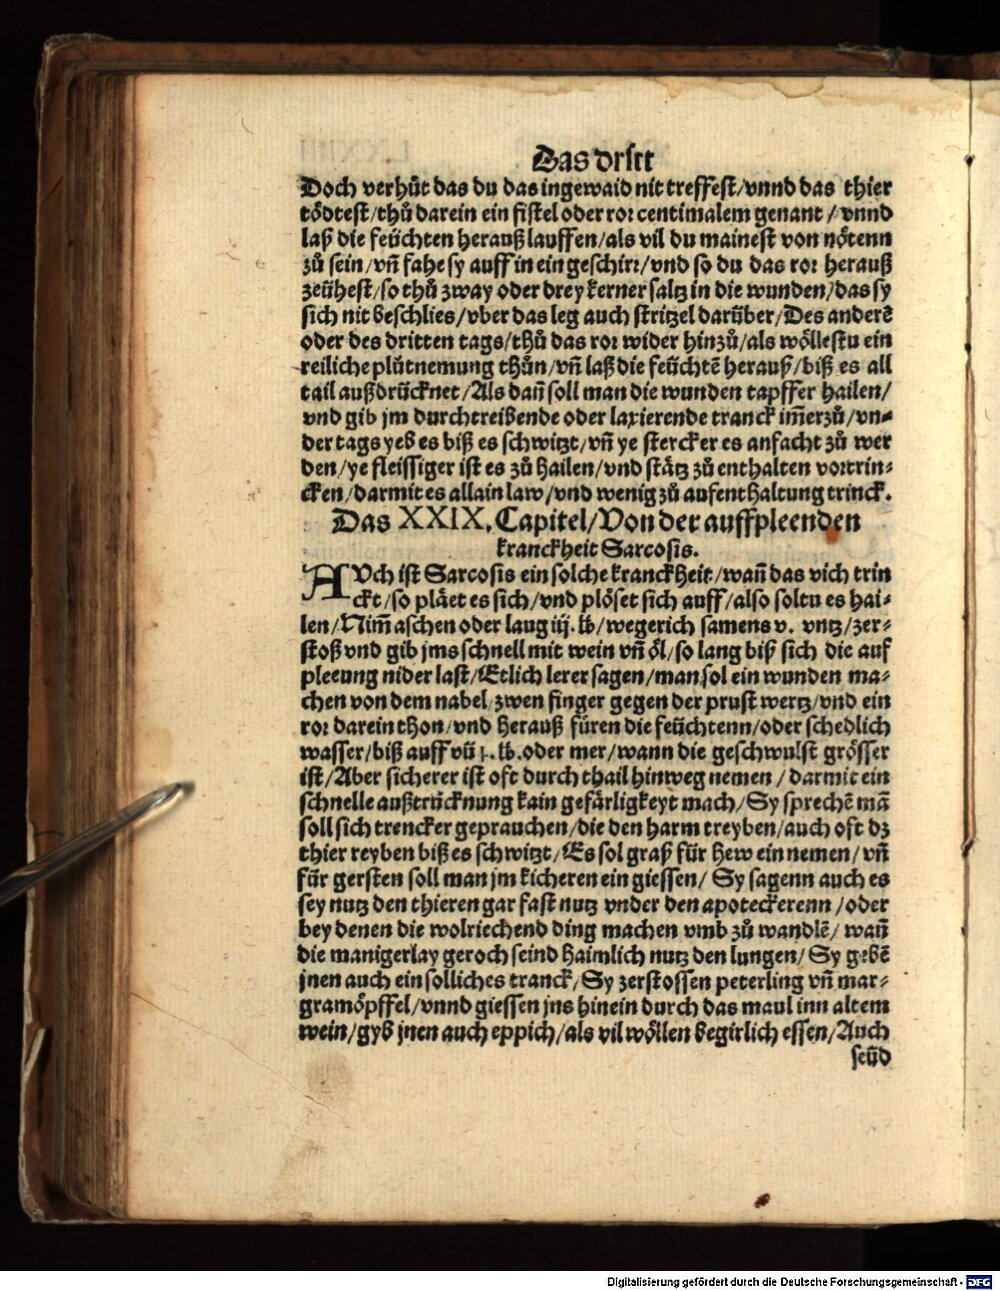 Das dritt
Doch verhüt das du das ingewaid nit treffest/vnnd das thier
tödtest/thů darein ein fistel oder ror centimalem genant/vnnd
laß die feüchten herauß lauffen/als vil du mainest von nötenn
zů sein/vñ fahe sy auff in ein geschirr/vnd so du das ror herauß
zeühest/so thů zway oder drey kerner saltz in die wunden/das sy
sich nit beschlies/vber das leg auch stritzel darüber/Des anderẽ
oder des dritten tags/thů das ror wider hinzů/als wöllestu ein
reiliche plůtnemung thůn/vñ laß die feüchtẽ herauß/biß es all
tail außdrücknet/Als dañ soll man die wunden tapffer hailen/
vnd gib jm durchtreibende oder laxierende tranck im̃erzů/vn⸗
der tags yeb es biß es schwitzt/vñ ye stercker es anfacht zů wer
den/ye fleissiger ist es zů hailen/vnd stätz zů enthalten vor trin⸗
cken/darmit es allain law/vnd wenig zů aufenthaltung trinck.
Das XXIX. Capitel/Von der auffpleenden
kranckheit Sarcosis.
AVch ist Sarcosis ein solche kranckheit/wañ das vich trin
ckt/so pläet es sich/vnd plöset sich auff/also soltu es hai⸗
len/Nim̃ aschen oder laug iij. lb/wegerich samens v. vntz/zer⸗
stoß vnd gib jms schnell mit wein vñ öl/so lang biß sich die auf
pleeung nider last/Etlich lerer sagen/man sol ein wunden ma⸗
chen von dem nabel zwen finger gegen der prust wertz/vnd ein
ror darein thon/vnd herauß füren die feüchtenn/oder schedlich
wasser/biß auff vü j. lb. oder mer/wann die geschwulst grösser
ist/Aber sicherer ist oft durch thail hinweg nemen/darmit ein
schnelle außtrücknung kain gefärligkeyt mach/Sy sprechẽ mã
soll sich trencker geprauchen/die den harm treyben/auch oft dz
thier reyben biß es schwitzt/Es sol graß für hew ein nemen/vñ
für gersten soll man jm kicheren ein giessen/Sy sagenn auch es
sey nutz den thieren gar fast nutz vnder den apoteckerenn/oder
bey denen die wolriechend ding machen vmb zů wandlẽ/wañ
die manigerlay geroch seind haimlich nutz den lungen/Sy gebẽ
jnen auch ein solliches tranck/Sy zerstossen peterling vñ mar⸗
gramöpffel/vnnd giessen jns hinein durch das maul inn altem
wein/gyb jnen auch eppich/als vil wöllen begirlich essen/Auch
seüd
Digitalisierung gefördert durch die Deutsche Forschungsgemeinschaft - DFG